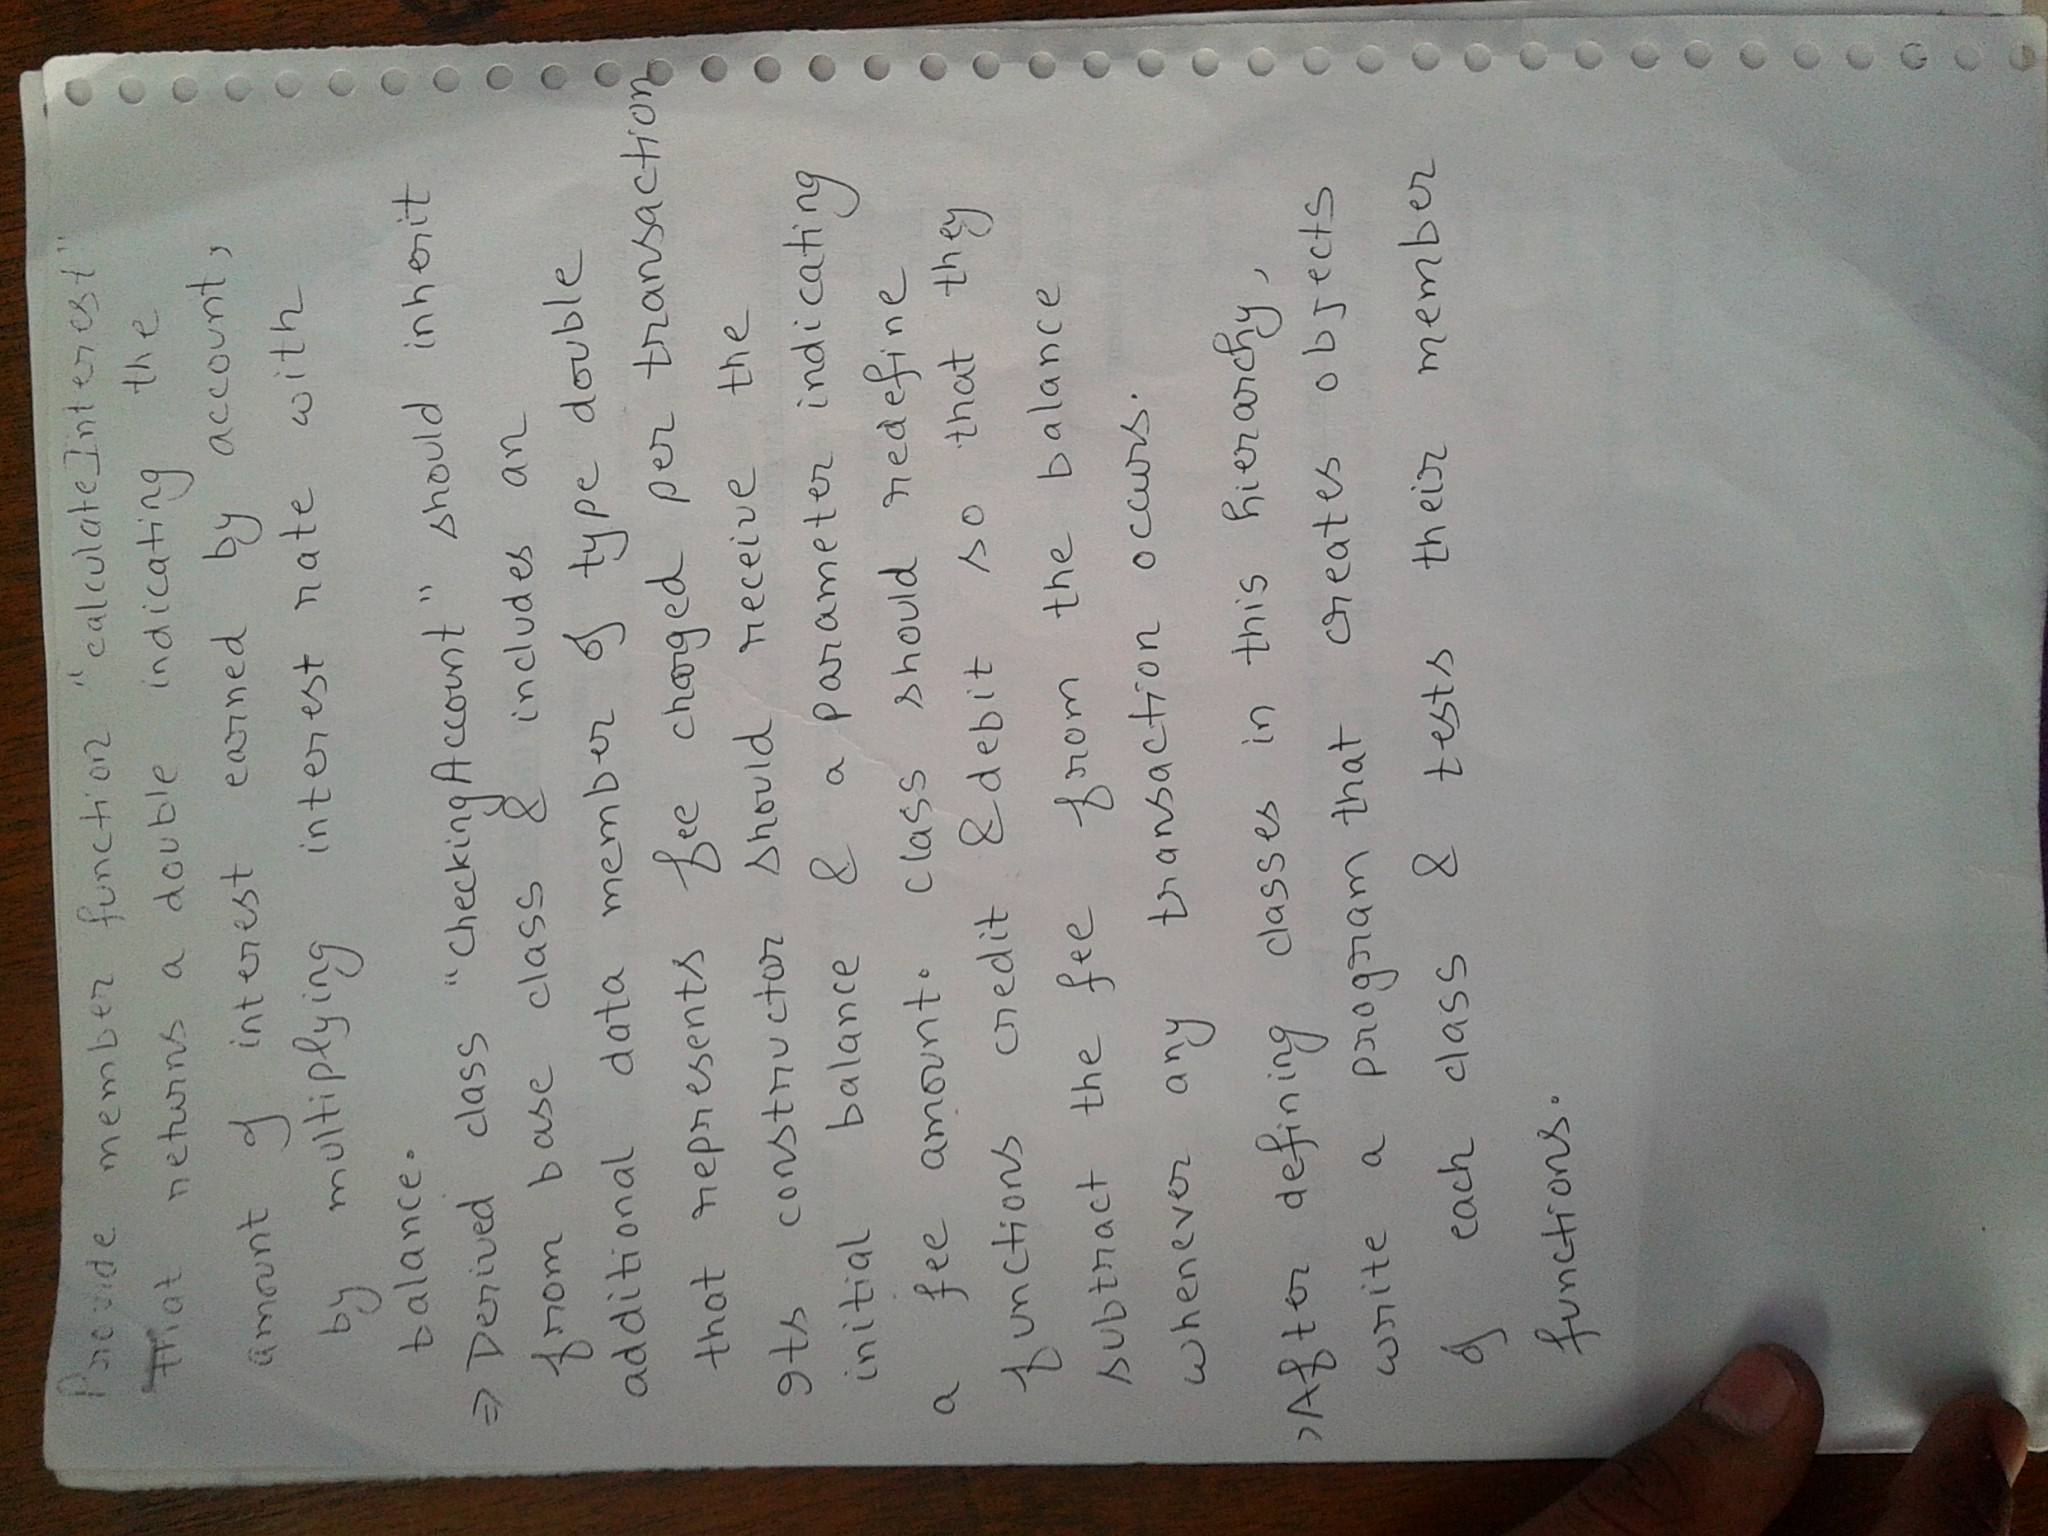 Provide member function "calculateInterest"
that returns a double indicating the
amount of interest earned by account,
by multiplying interest rate with
balance.
⇒ Derived class "checkingAccount" should inherit
from base class & includes an
additional data member of type double
that represents fee charged per transaction
Its constructor should receive the
initial balance & a parameter indicating
a fee amount. class should redefine
functions credit & debit so that they
subtract the fee from the balance
whenever any transaction occurs.
, After defining classes in this hierarchy,
write a program that creates objects
of each class & tests their member
functions.